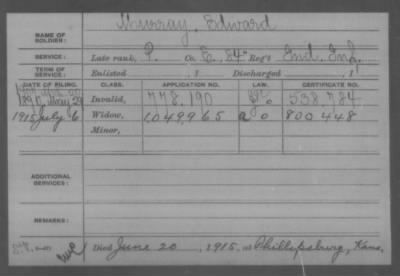 NAME OF SOLDIER: Murray, Edward
SERVICE: Late rank, P. Co. E, 84" Reg't Ind. Inf.
TERM OF SERVICE: Enlisted , 1 Discharged , 1
DATE OF FILING. CLASS. APPLICATION NO. LAW. CERTIFICATE NO.
1890 May 29 Invalid, 778.190 538.784
1915 July 6 Widow, 1.049.965 800448
Minor,
ADDITIONAL SERVICES:
REMARKS:
Died June 20, 1915, at Phillipsburg, Kans.